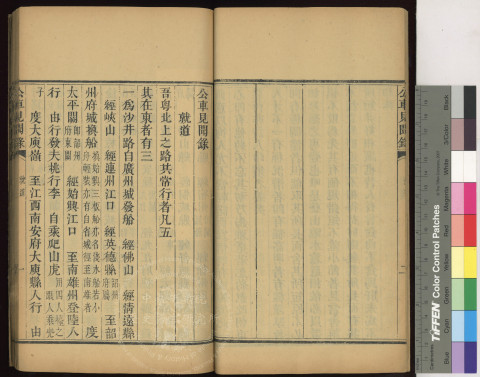 公車見聞錄
公車見聞錄
就道
吾粵北上之路其常行者凡五
其在東者有三
一為沙井路自廣州城發船 經佛山 經清遠縣
經峽山 經連州江口 經英德縣 至韶
州府城換船 度
太平關 經始興江口 至南雄州登陸
行 由行發夫挑行李 自乘爬山虎
度大庾嶺 至江西南安府大庾縣入行 由
公車見聞錄
TIFFEN Color Control Patches
Blue
Cyan
Green
Yellow
Red
Magenta
White
3/Color
Black